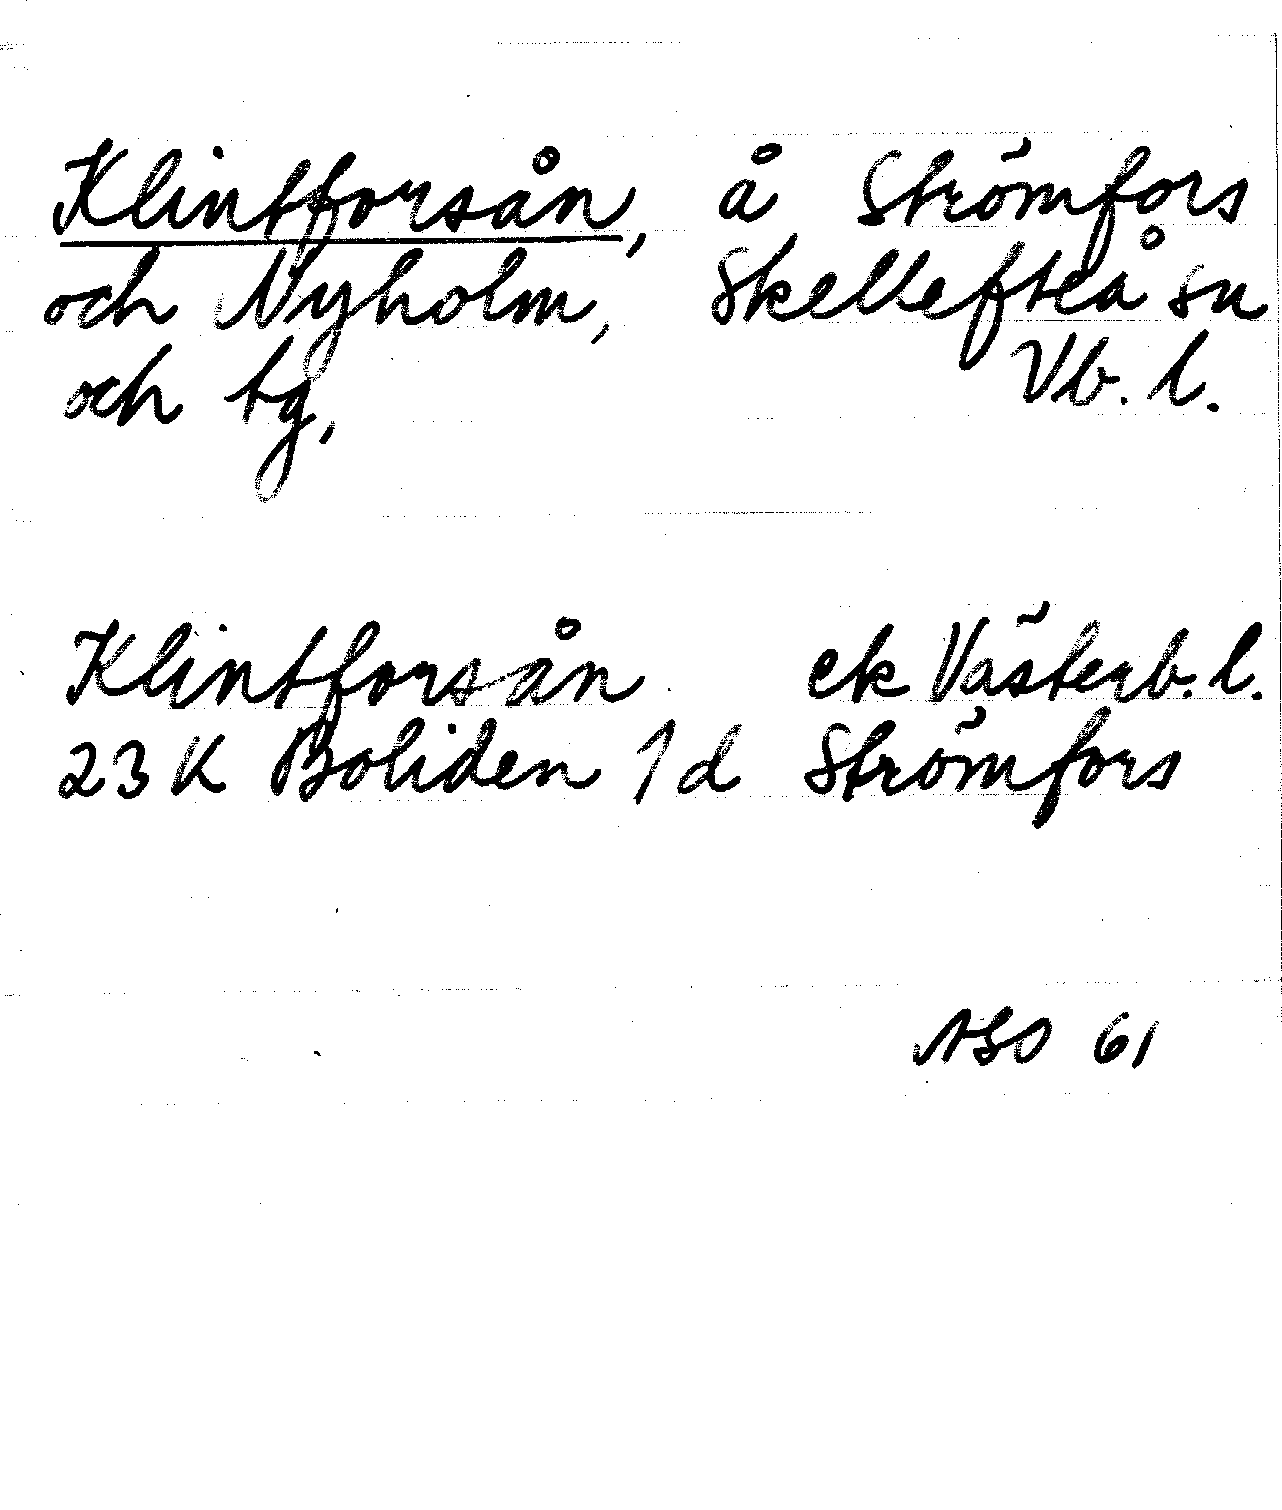 Klintforsån, å Strömfors
och Nyholm, Skellefteå sn
och tg, Vb. l.
Klintforsån ek Västerb. l.
23 K Boliden 1 d Strömfors
ASO 61